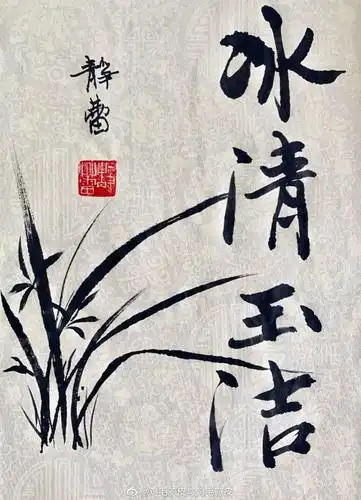 冰清玉洁
静蕾